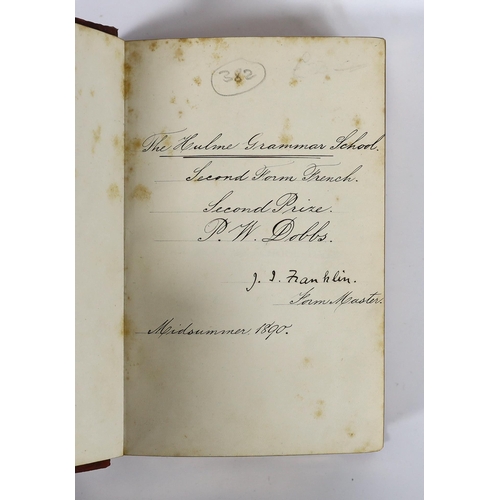 382
The Hulme Grammar School.
Second Form French.
Second Prize.
P. W. Dobbs.
J. I. Franklin.
Form Master.
Midsummer 1890.